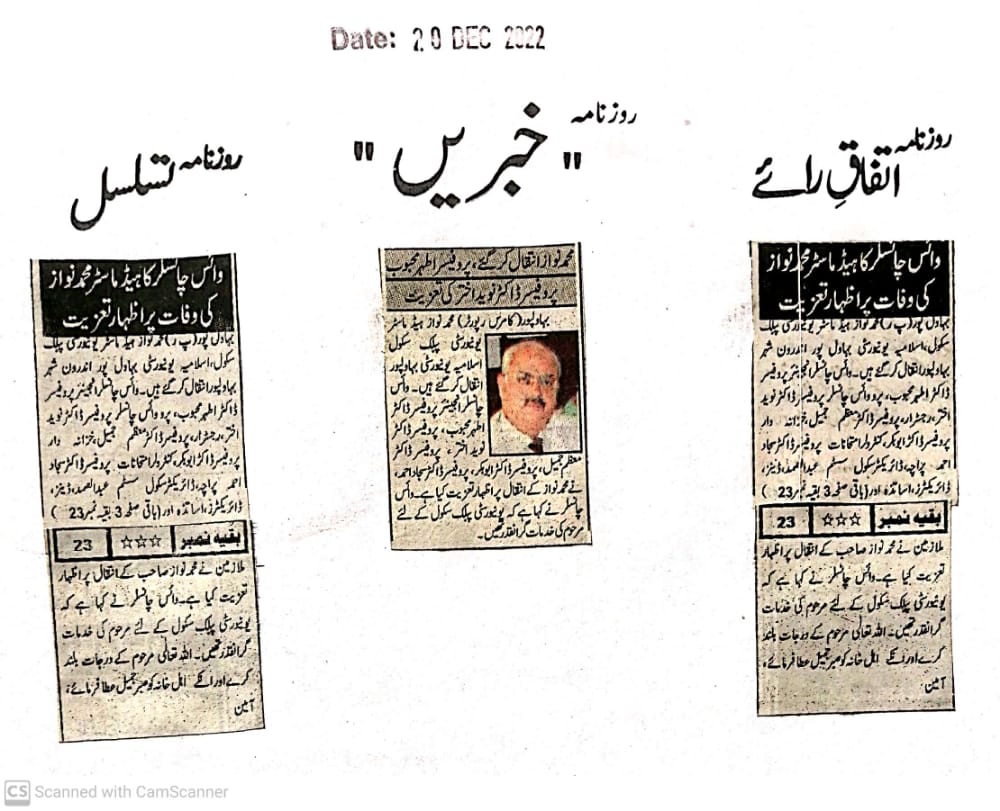 Date: 20 DEC 2022
روزنامہ اتفاقِ رائے
روزنامہ
"خبریں"
روزنامہ تسلسل
وائس چانسلر کا ہیڈ ماسٹر محمد نواز
کی وفات پر اظہار تعزیت
بہاول پور (پ ر) محمد نواز ہیڈ ماسٹر یونیورسٹی پبلک
سکول، اسلامیہ یونیورسٹی بہاول پور اندرون شہر
بہاولپور انتقال کر گئے ہیں۔ وائس چانسلر انجینئر پروفیسر
ڈاکٹر اطہر محبوب، پرو وائس چانسلر پروفیسر ڈاکٹر نوید
اختر، رجسٹرار، پروفیسر ڈاکٹر معظم جمیل، خزانہ دار
پروفیسر ڈاکٹر ابوبکر، کنٹرولر امتحانات پروفیسر ڈاکٹر سجاد
احمد پراچہ، ڈائریکٹر سکول سسٹم عبدالصمد، ڈینز،
ڈائریکٹرز، اساتذہ اور (باقی صفحہ 3 بقیہ نمبر 23)
بقیہ نمبر ☆☆☆ 23
ملازمین نے محمد نواز صاحب کے انتقال پر اظہار
تعزیت کیا ہے۔ وائس چانسلر نے کہا ہے کہ
یونیورسٹی پبلک سکول کے لئے مرحوم کی خدمات
گرانقدر تھیں۔ اللہ تعالیٰ مرحوم کے درجات بلند
کرے اور انکے اہل خانہ کو صبر جمیل عطا فرمائے،
آمین
محمد نواز انتقال کر گئے، پروفیسر اطہر محبوب
پروفیسر ڈاکٹر نوید اختر کی تعزیت
بہاولپور (کامرس رپورٹر) محمد نواز ہیڈ ماسٹر
یونیورسٹی پبلک سکول
اسلامیہ یونیورسٹی بہاولپور
انتقال کر گئے ہیں۔ وائس
چانسلر انجینئر پروفیسر ڈاکٹر
اطہر محبوب، پروفیسر ڈاکٹر
نوید اختر، پروفیسر ڈاکٹر
معظم جمیل، پروفیسر ڈاکٹر ابوبکر، پروفیسر ڈاکٹر سجاد احمد،
نے محمد نواز کے انتقال پر اظہار تعزیت کیا ہے۔ وائس
چانسلر نے کہا ہے کہ یونیورسٹی پبلک سکول کے لئے
مرحوم کی خدمات گرانقدر ہیں۔
وائس چانسلر کا ہیڈ ماسٹر محمد نواز
کی وفات پر اظہار تعزیت
بہاول پور (پ ر) محمد نواز ہیڈ ماسٹر یونیورسٹی پبلک
سکول، اسلامیہ یونیورسٹی بہاول پور اندرون شہر
بہاولپور انتقال کر گئے ہیں۔ وائس چانسلر انجینئر پروفیسر
ڈاکٹر اطہر محبوب، پرو وائس چانسلر پروفیسر ڈاکٹر نوید
اختر، رجسٹرار، پروفیسر ڈاکٹر معظم جمیل، خزانہ دار
پروفیسر ڈاکٹر ابوبکر، کنٹرولر امتحانات پروفیسر ڈاکٹر سجاد
احمد پراچہ، ڈائریکٹر سکول سسٹم عبدالصمد، ڈینز،
ڈائریکٹرز، اساتذہ اور (باقی صفحہ 3 بقیہ نمبر 23)
بقیہ نمبر ☆☆☆ 23
ملازمین نے محمد نواز صاحب کے انتقال پر اظہار
تعزیت کیا ہے۔ وائس چانسلر نے کہا ہے کہ
یونیورسٹی پبلک سکول کے لئے مرحوم کی خدمات
گرانقدر تھیں۔ اللہ تعالیٰ مرحوم کے درجات بلند
کرے اور انکے اہل خانہ کو صبر جمیل عطا فرمائے،
آمین
CS Scanned with CamScanner